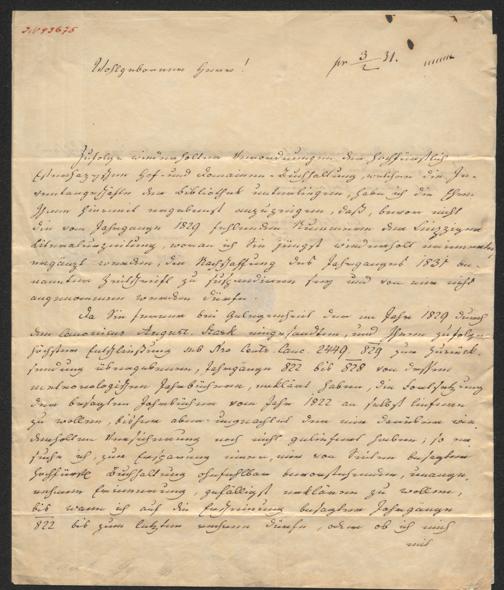 J.N 43675
Wohlgeborner Herr!
pr 3/2 31.
Zufolge wiederholten Verordnungen der hochfürstlich
Esterhazyschen Hof- und Domainen-Buchhaltung, welcher die In-
ventargeschäfte der Bibliothek unterliegen, habe ich die Ehre
Ihnen hiermit ergebenst anzuzeigen, daß, bevor nicht
die vom Jahrgange 1829 fehlenden Nummern der Leipziger
Literaturzeitung, woran ich Sie jüngst wiederholt erinnerte,
ergänzt werden, die Nachschaffung des Jahrganges 1831 be-
nannter Zeitschrift zu suspendieren sey und von mir nicht
angenommen werden dürfe.
Da Sie ferner bei Gelegenheit der im Jahre 1829 durch
den Canonicus August. Stark eingesandten, und Ihnen zufolge
höchster Entschließung sub Nro Centr. Canc. 2449/829 zur Zurück-
sendung übergebenen, Jahrgänge 822 bis 828 von dessen
meteorologischen Jahrbüchern, erklärt haben, die Fortsetzung
der besagten Jahrbücher vom Jahr 1822 an selbst liefern
zu wollen, bisher aber ungeachtet der mir darüber wie-
derholten Versicherung noch nicht geliefert haben; so er-
suche ich, zur Ersparung einer, mir von Seiten besagter
hochfürstl. Buchhaltung ohnfehlbar bevorstehenden, unange-
nehmen Erinnerung, gefälligst erklären zu wollen,
bis wann ich auf die Erscheinung besagter Jahrgänge
822 bis zum letzten rechnen dürfe, oder ob ich mich
mit